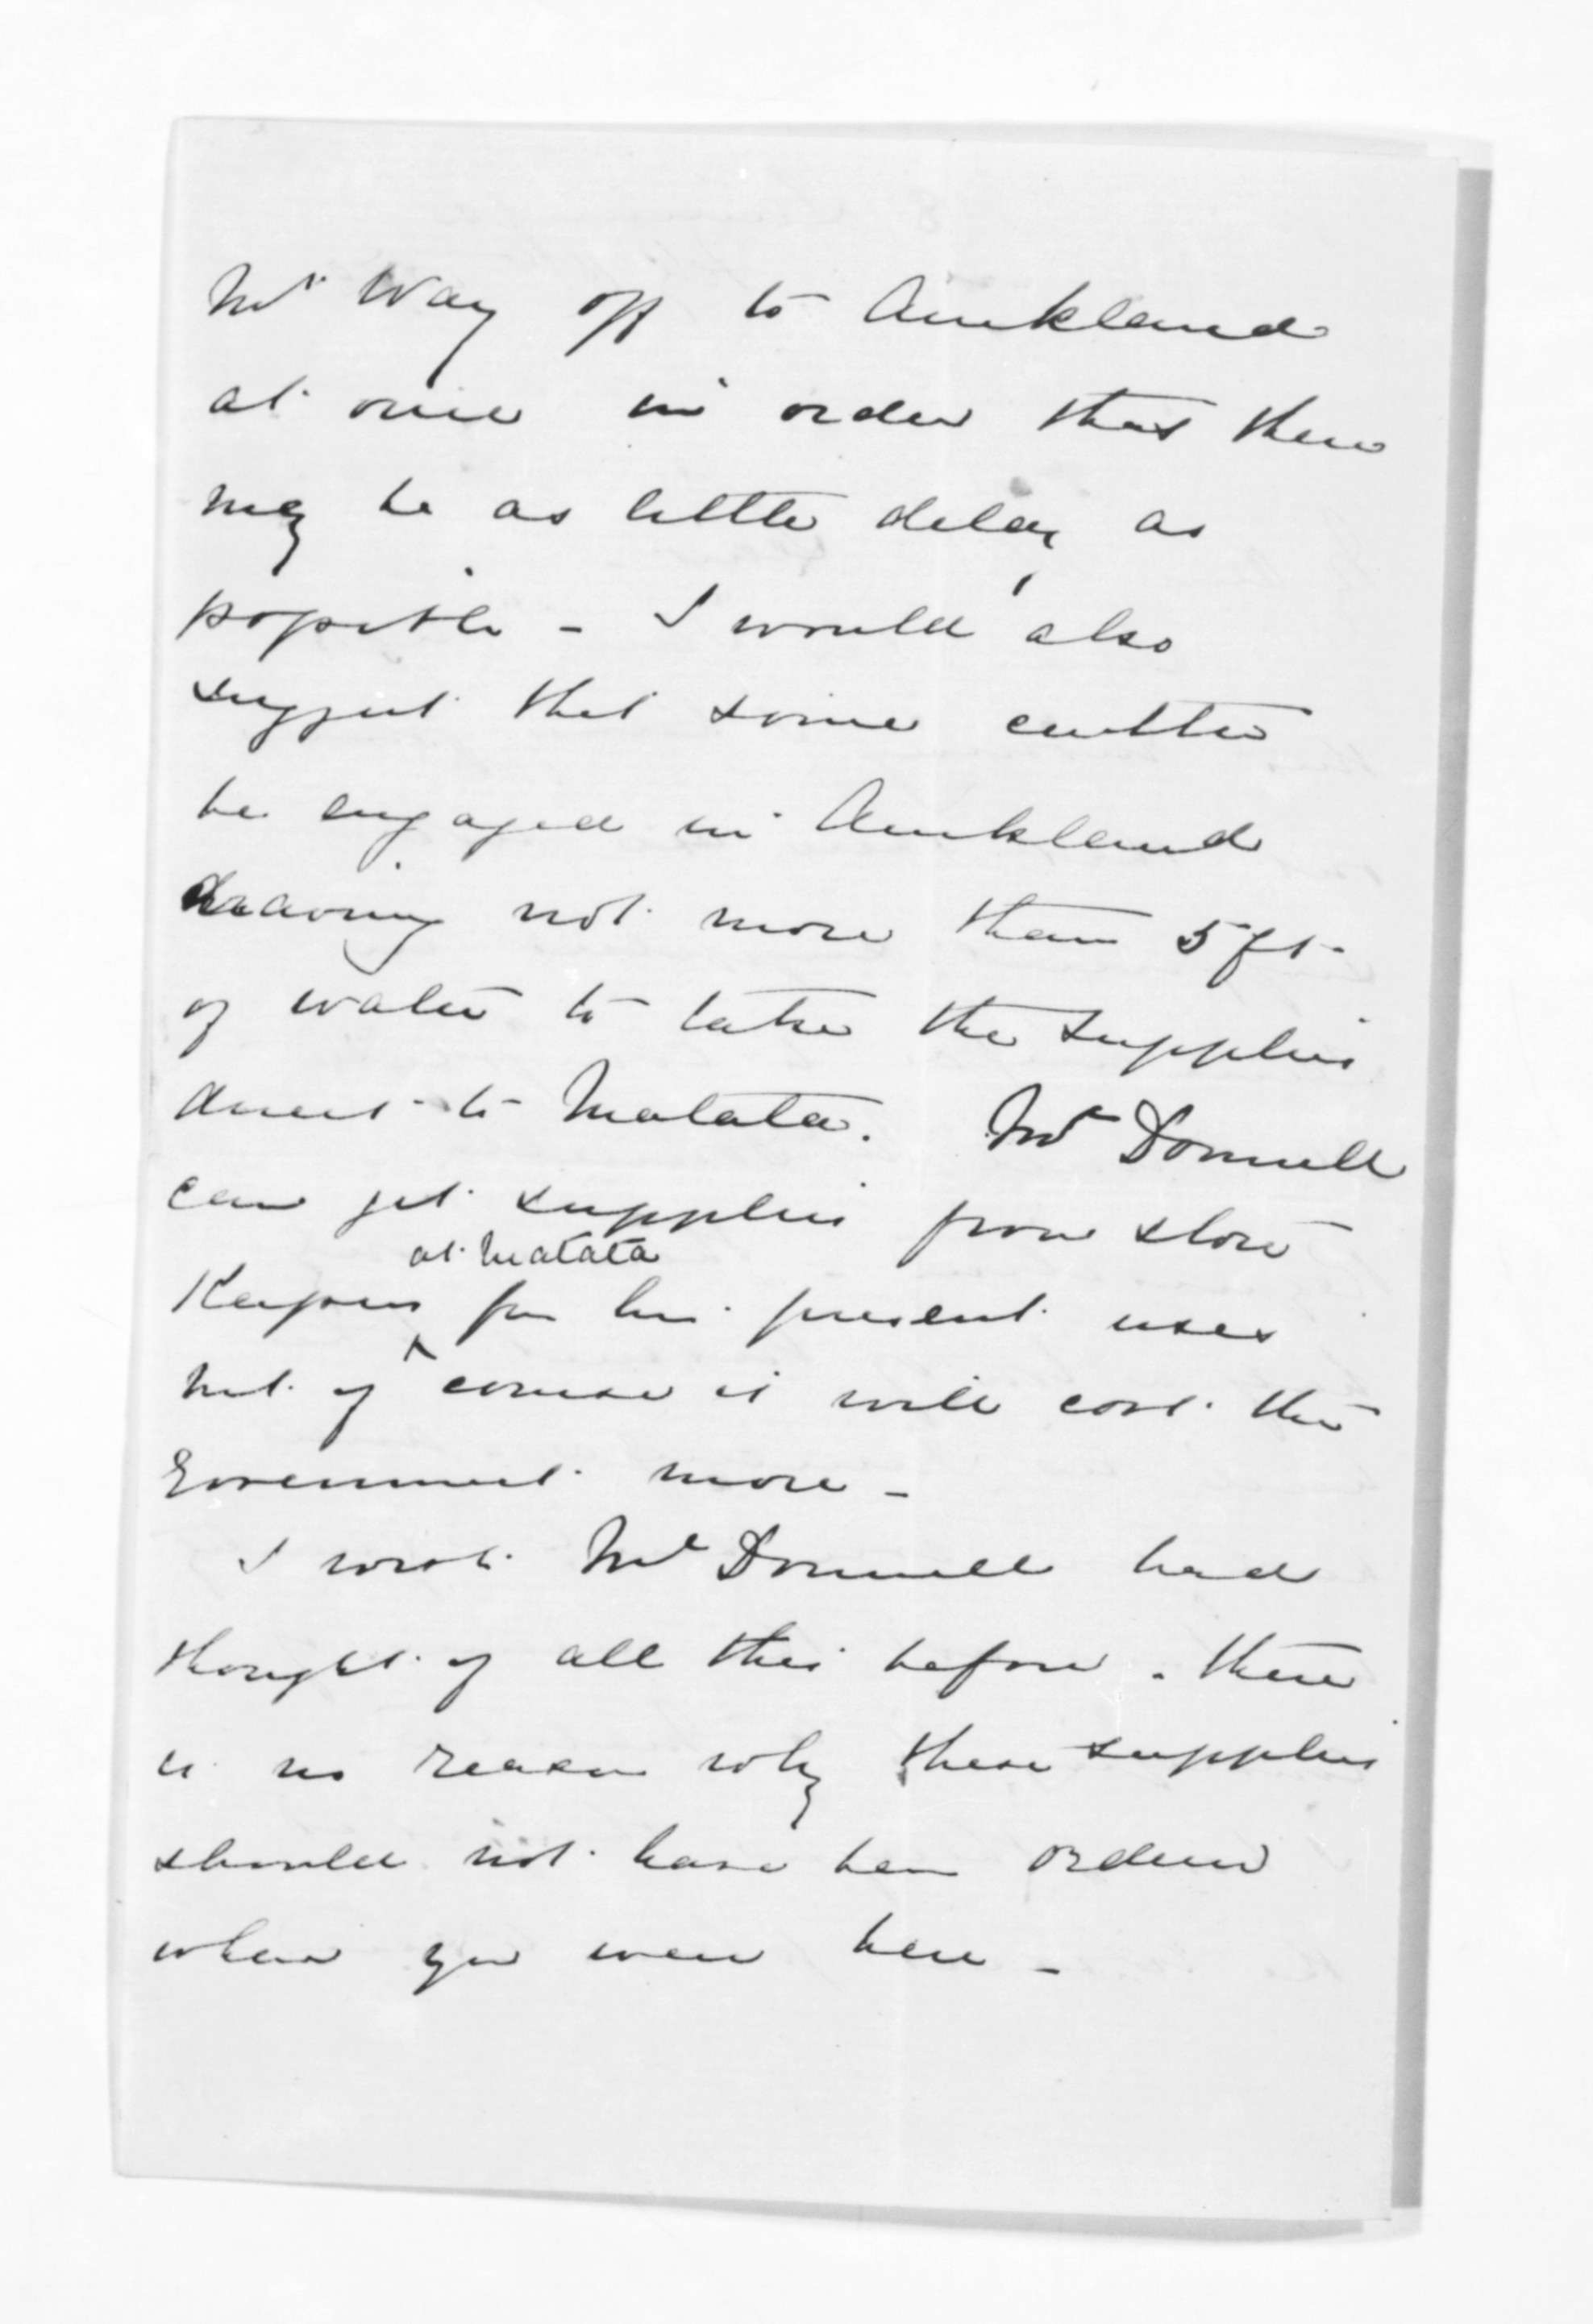 Mr Way off to Auckland
at once in order that there
may be as little delay as
possible - I would also
suggest that some cutter
be engaged in Auckland
drawing not more than 5 ft
of water to take the supplies
direct to Matata. McDonnell
can get supplies from store
at Matata
Keepers for his present uses
but of course it will cost the
Government more -
I wish McDonnell had
thought of all this before. There
is no reason why these supplies
should not have been ordered
when you were here -